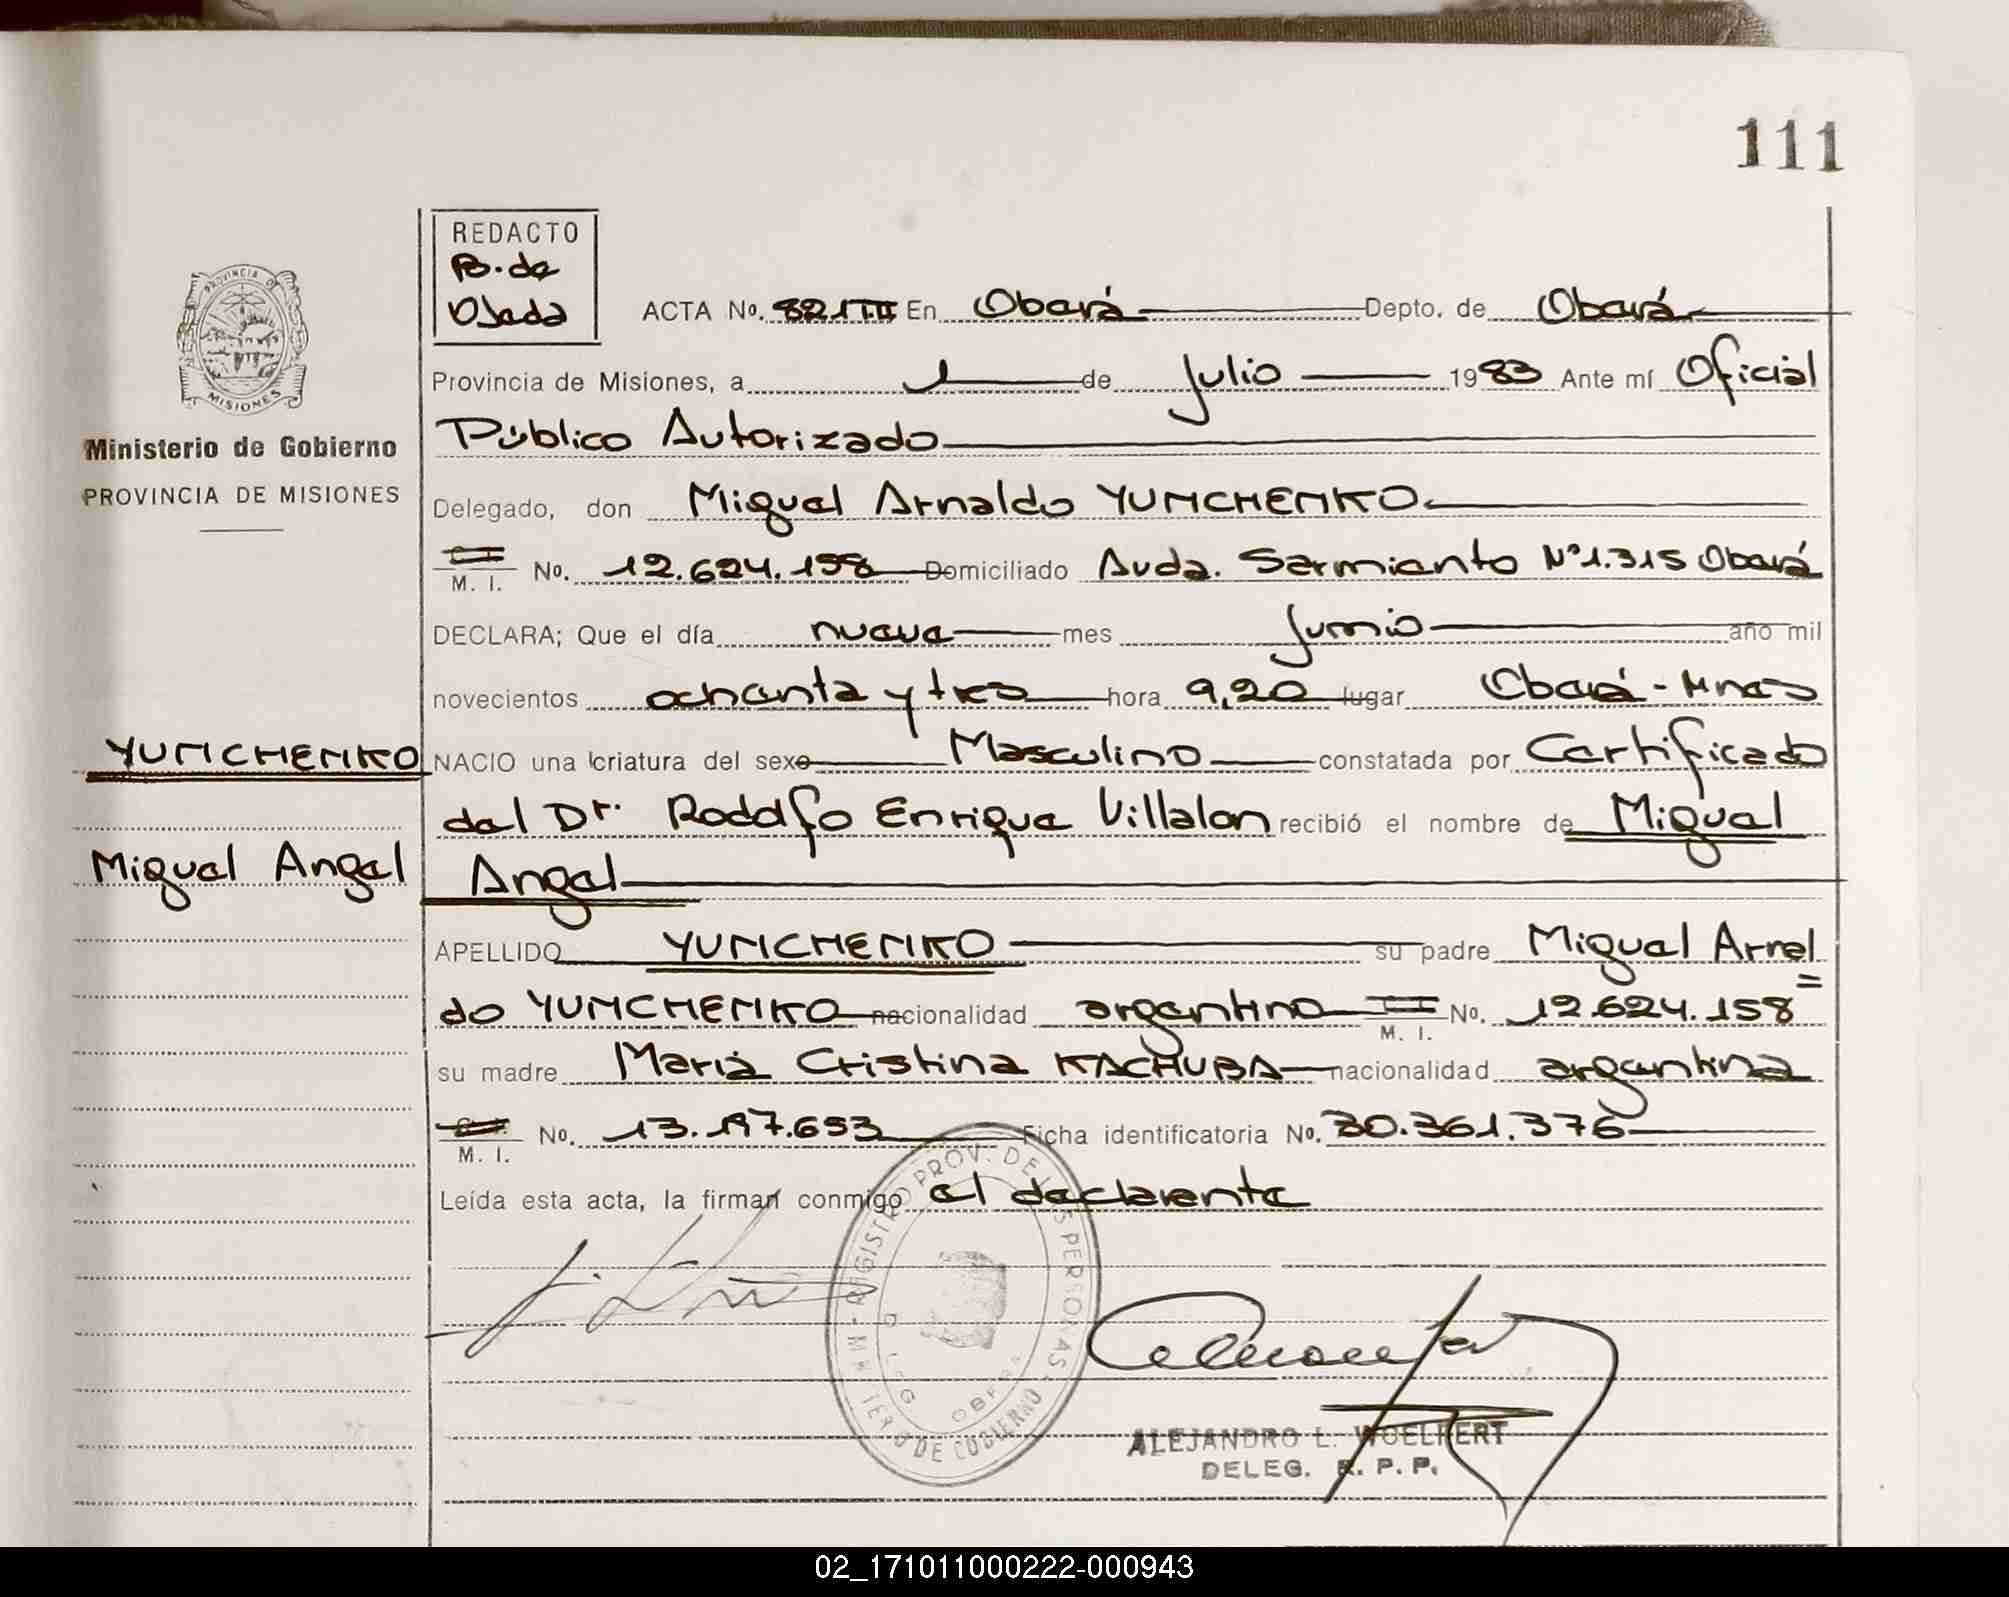 111
REDACTO
B. de
Ojeda
ACTA No. 821 T.II En Oberá Depto. de Oberá
PROVINCIA DE
MISIONES
Ministerio de Gobierno
PROVINCIA DE MISIONES
Provincia de Misiones, a 1 de Julio 1983 Ante mí Oficial
Público Autorizado
Delegado, don Miguel Arnaldo YUMCHEMKO
M. I. No. 12.624.158 Domiciliado Avda. Sarmiento Nº 1.315 Oberá
DECLARA; Que el día nueve mes Junio año mil
novecientos ochenta y tres hora 9,20 lugar Oberá - Mnes
YUMCHEMKO
NACIO una criatura del sexo Masculino constatada por Certificado
del Dr. Rodolfo Enrique Villalon recibió el nombre de Miguel
Miguel Angel
Angel
APELLIDO YUMCHEMKO su padre Miguel Arnal=
do YUMCHEMKO nacionalidad argentino M. I. No. 12.624.158
su madre Maria Cristina KACHUBA nacionalidad argentina
M. I. No. 13.197.653 Ficha identificatoria No. 30.361.376
Leída esta acta, la firman conmigo el declarente
REGISTRO PROV. DE LAS PERSONAS - MINISTERIO DE GOBIERNO
DELEG. OBERA
ALEJANDRO L. WOELFERT
DELEG. R. P. P.
02_171011000222-000943